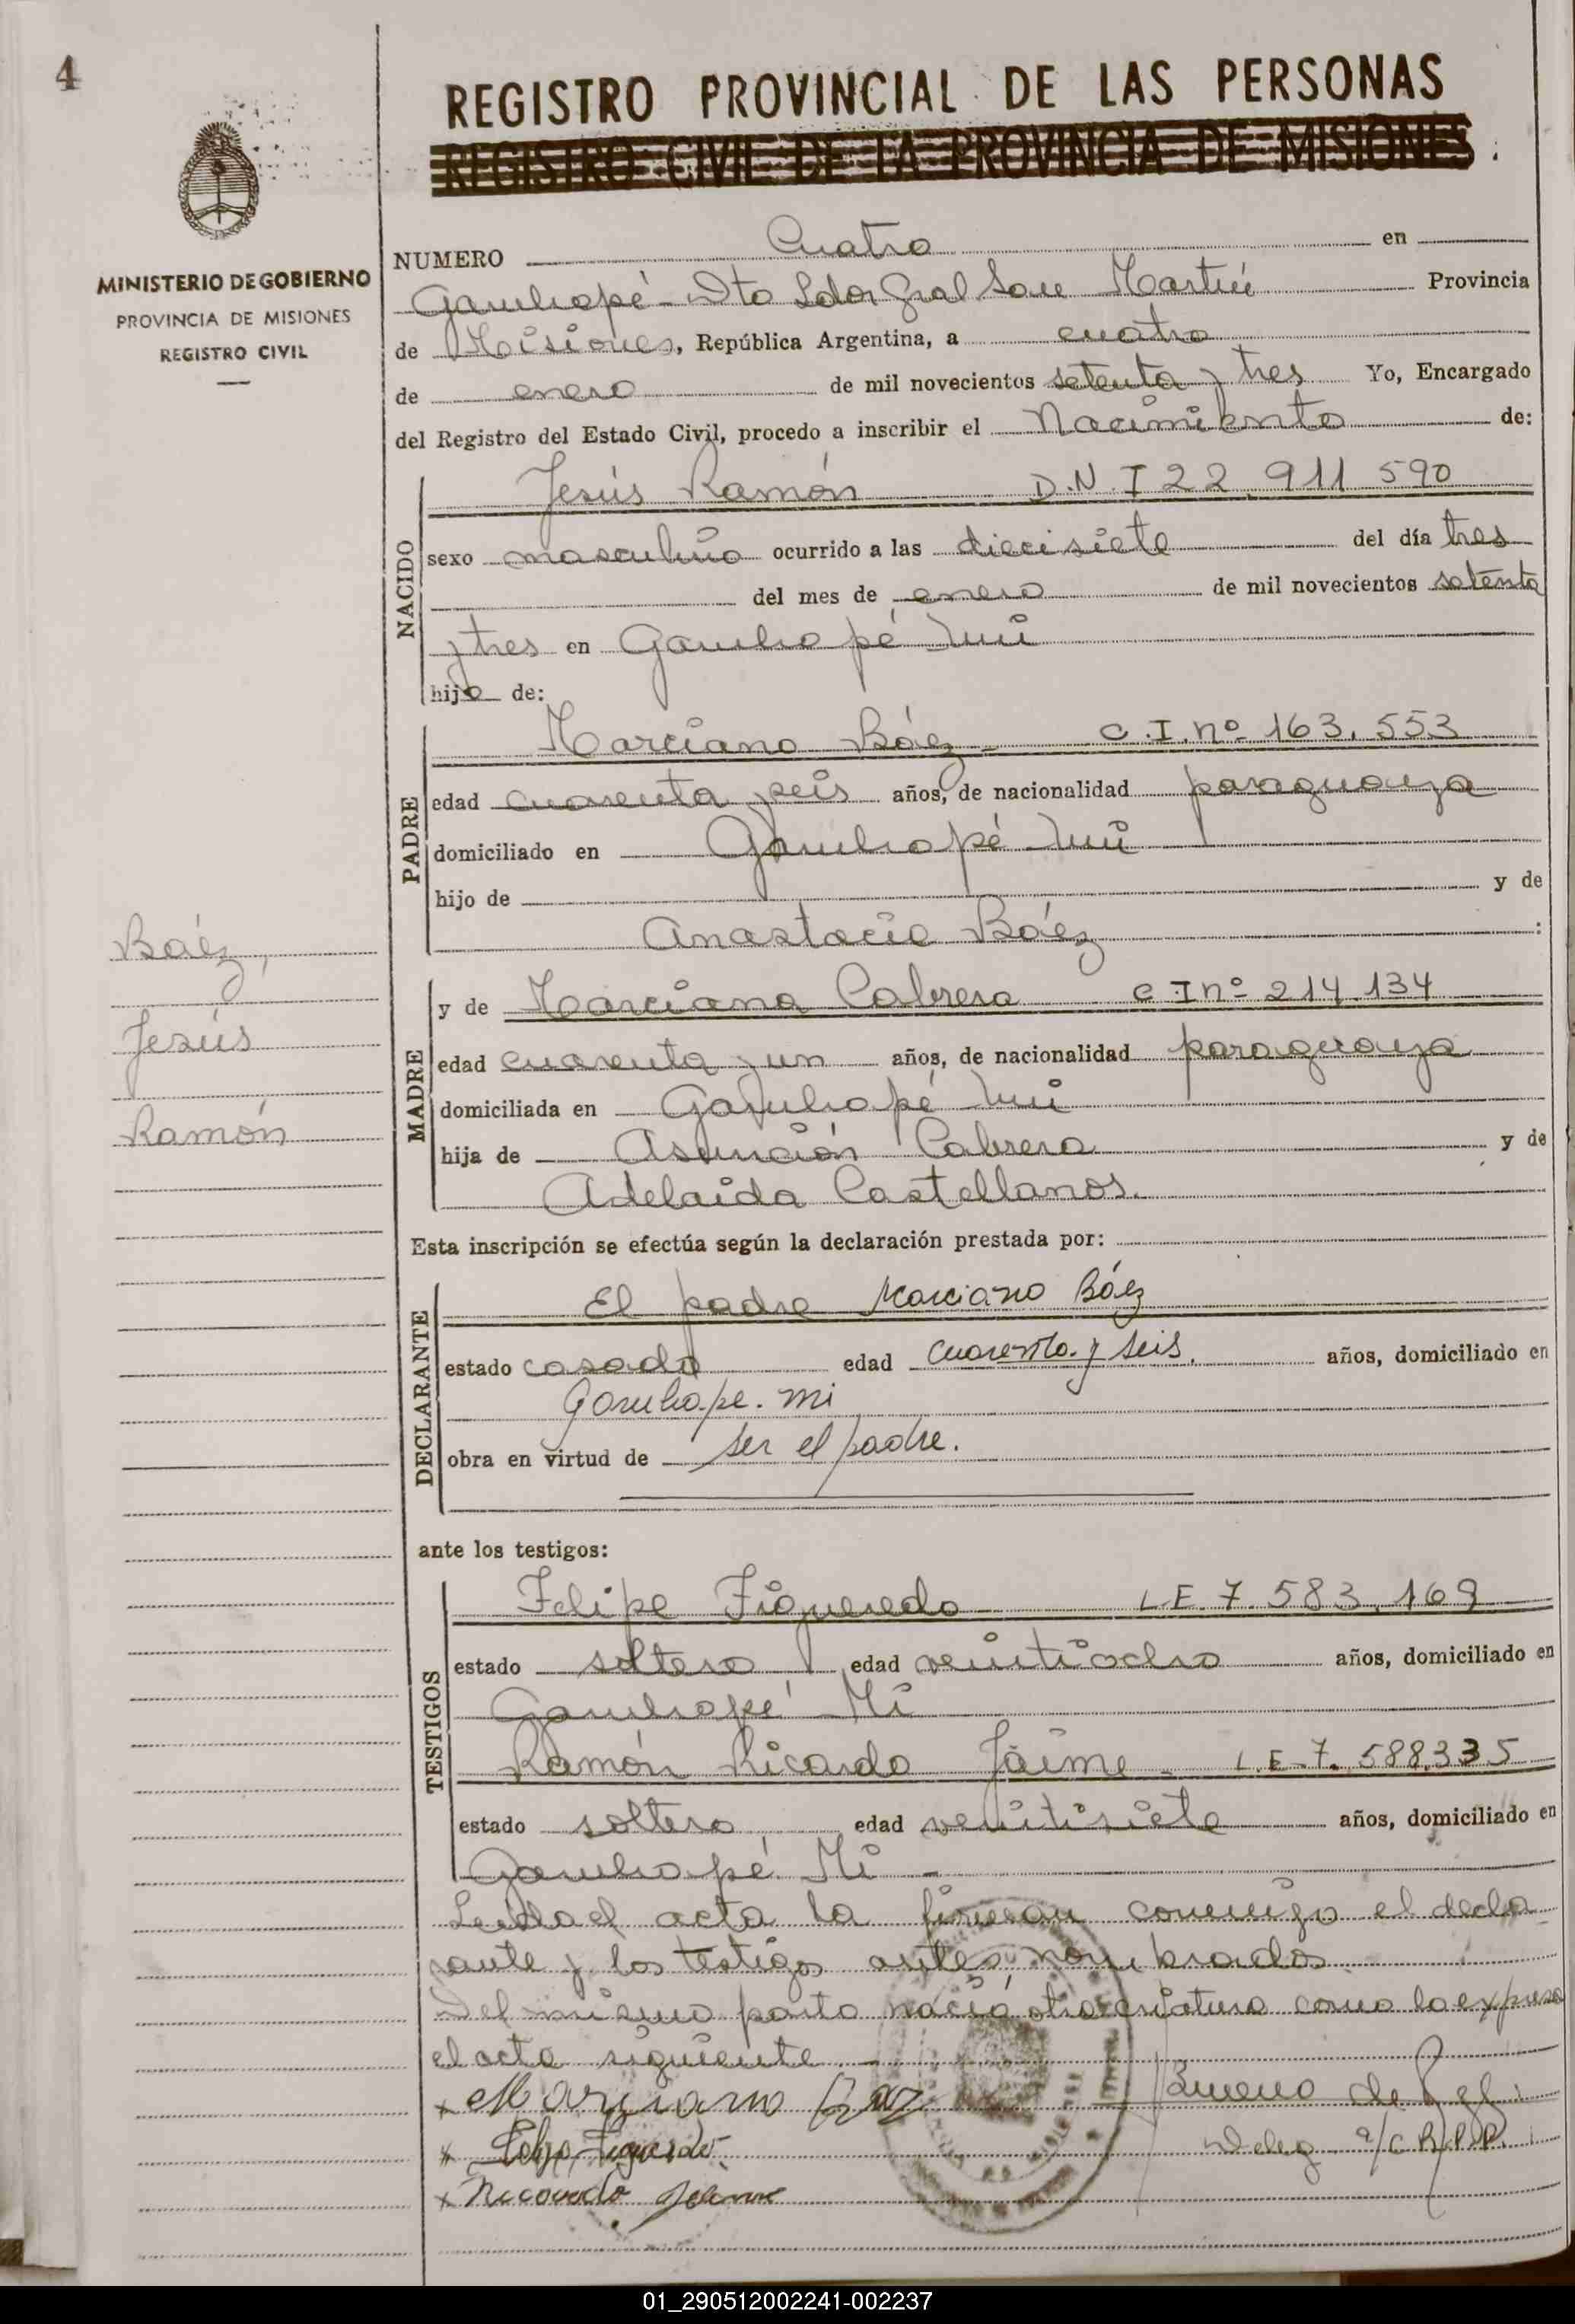 4
REGISTRO PROVINCIAL DE LAS PERSONAS
REGISTRO CIVIL DE LA PROVINCIA DE MISIONES
MINISTERIO DE GOBIERNO
PROVINCIA DE MISIONES
REGISTRO CIVIL
NUMERO Cuatro en
Garuhapé - Dto Ldor Gral San Martín Provincia
de Misiones, República Argentina, a cuatro
de enero de mil novecientos setenta y tres Yo, Encargado
del Registro del Estado Civil, procedo a inscribir el Nacimiento de:
NACIDO
Jesús Ramón D.N.I 22.911.590
sexo masculino ocurrido a las diecisiete del día tres
del mes de enero de mil novecientos setenta
y tres en Garuhapé Miní
hijo de:
PADRE
Marciano Báez - C.I.nº 163.553
edad cuarenta y seis años, de nacionalidad paraguaya
domiciliado en Garuhapé Miní
hijo de y de
Anastacia Báez
Báez,
Jesús
Ramón
MADRE
y de Marciana Cabrera C I nº 214.134
edad cuarenta y un años, de nacionalidad paraguaya
domiciliada en Garuhapé Miní
hija de Asunción Cabrera y de
Adelaida Castellanos.
Esta inscripción se efectúa según la declaración prestada por:
DECLARANTE
El padre Marciano Báez
estado casado edad cuarenta y seis. años, domiciliado en
Garuhape. mi
obra en virtud de ser el padre.
ante los testigos:
TESTIGOS
Felipe Figueredo L.E. 7.583.169
estado soltero edad veintiocho años, domiciliado en
Garuhapé Mi
Ramón Ricardo Jaime - L.E. 7.588.335
estado soltero edad veintisiete años, domiciliado en
Garuhapé Mi -
Leida el acta la firman conmigo el decla
rante y los testigos antes nombrados.
Del mismo parto nació otra criatura como lo expresa
el acta siguiente. -
x Marciano Baez
x Felipe Figueredo
x Ricardo Jaime
Deleg a/c R.P.P.
01_290512002241-002237